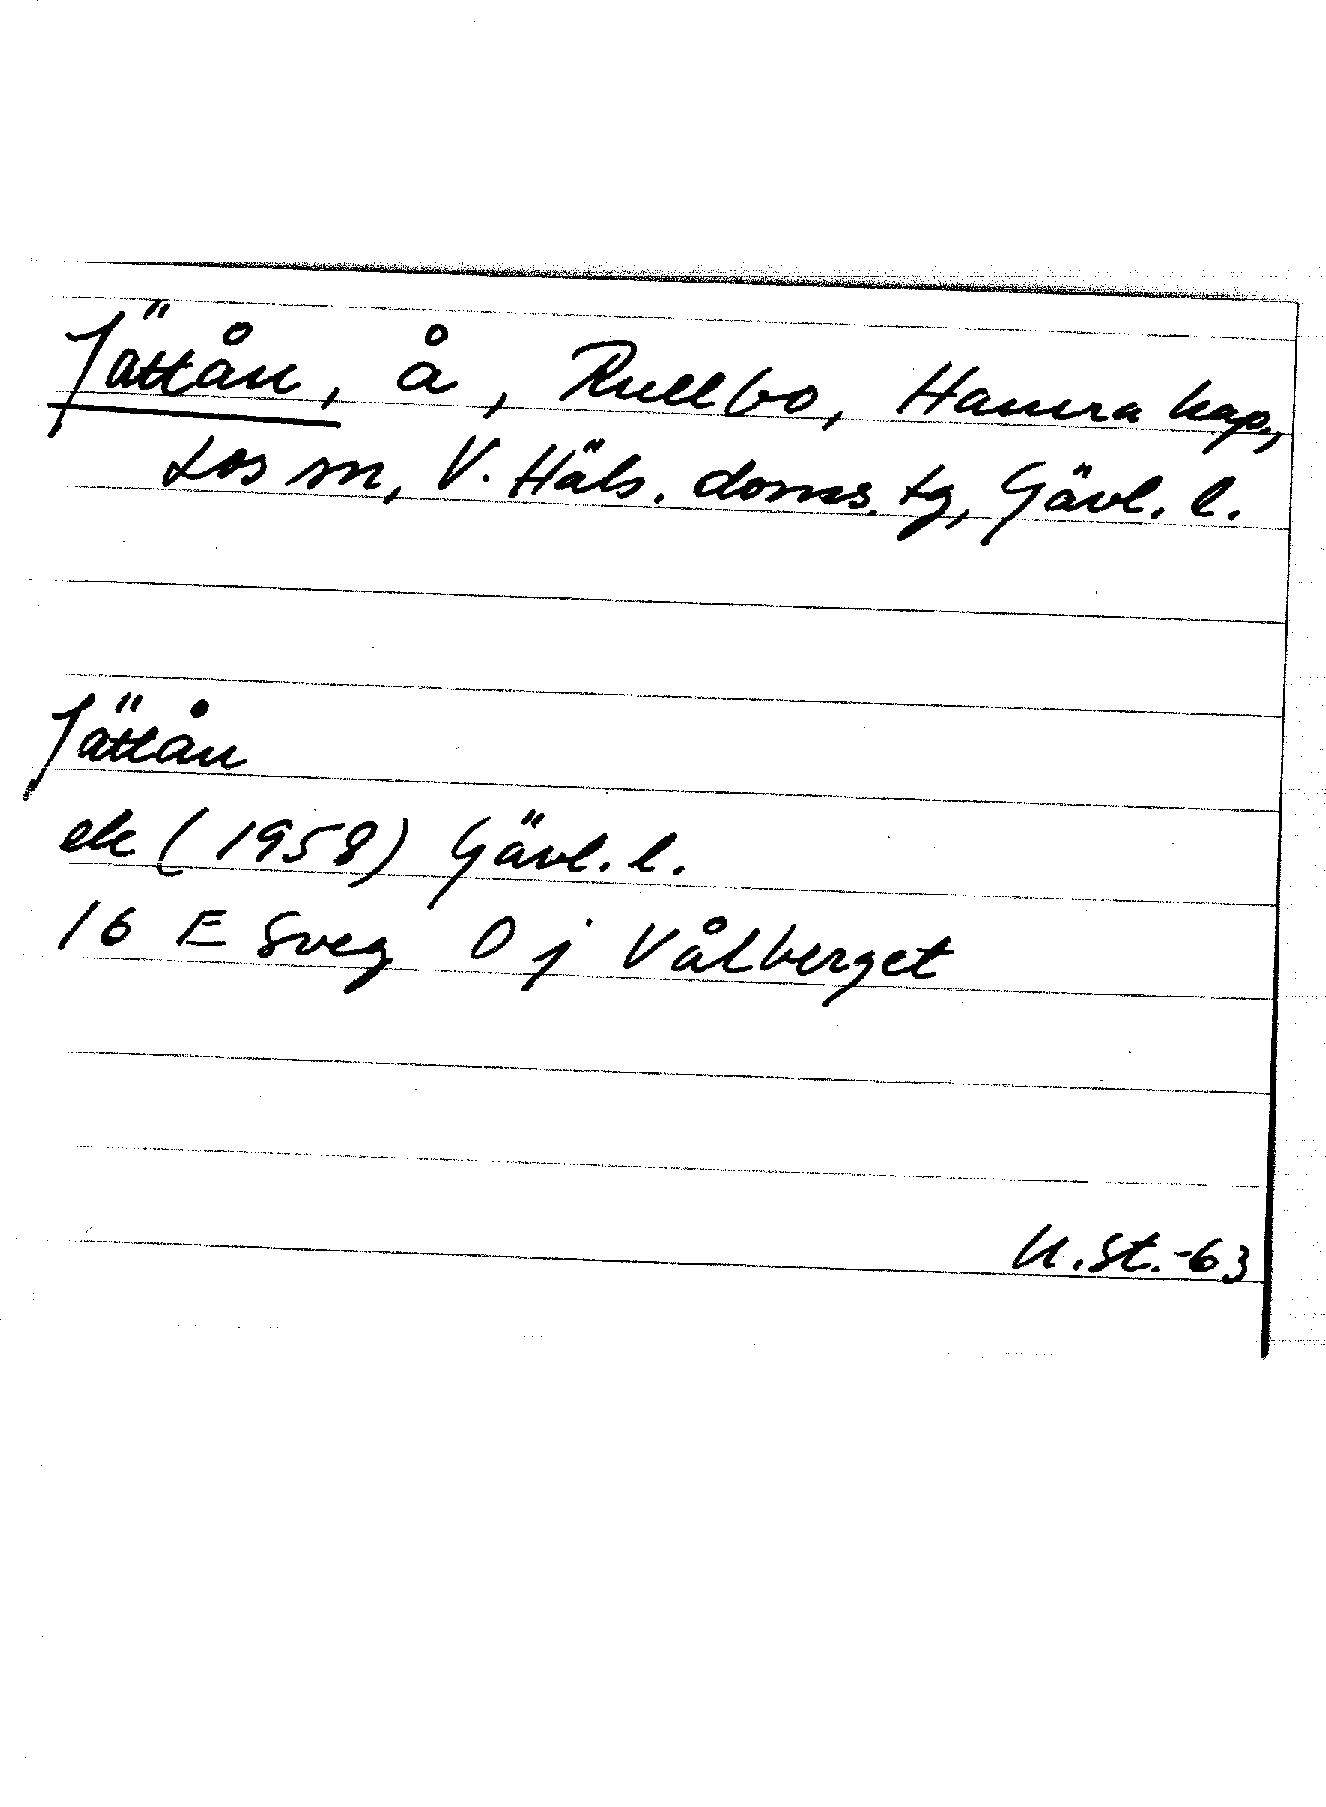 Jättån, å, Rullbo, Hamra kap.,
Los sn, V. Häls. doms. tg, Gävl. l.
Jättån
ek (1958) Gävl. l.
16 E Sveg 0 j Vålberget
U.St.-63